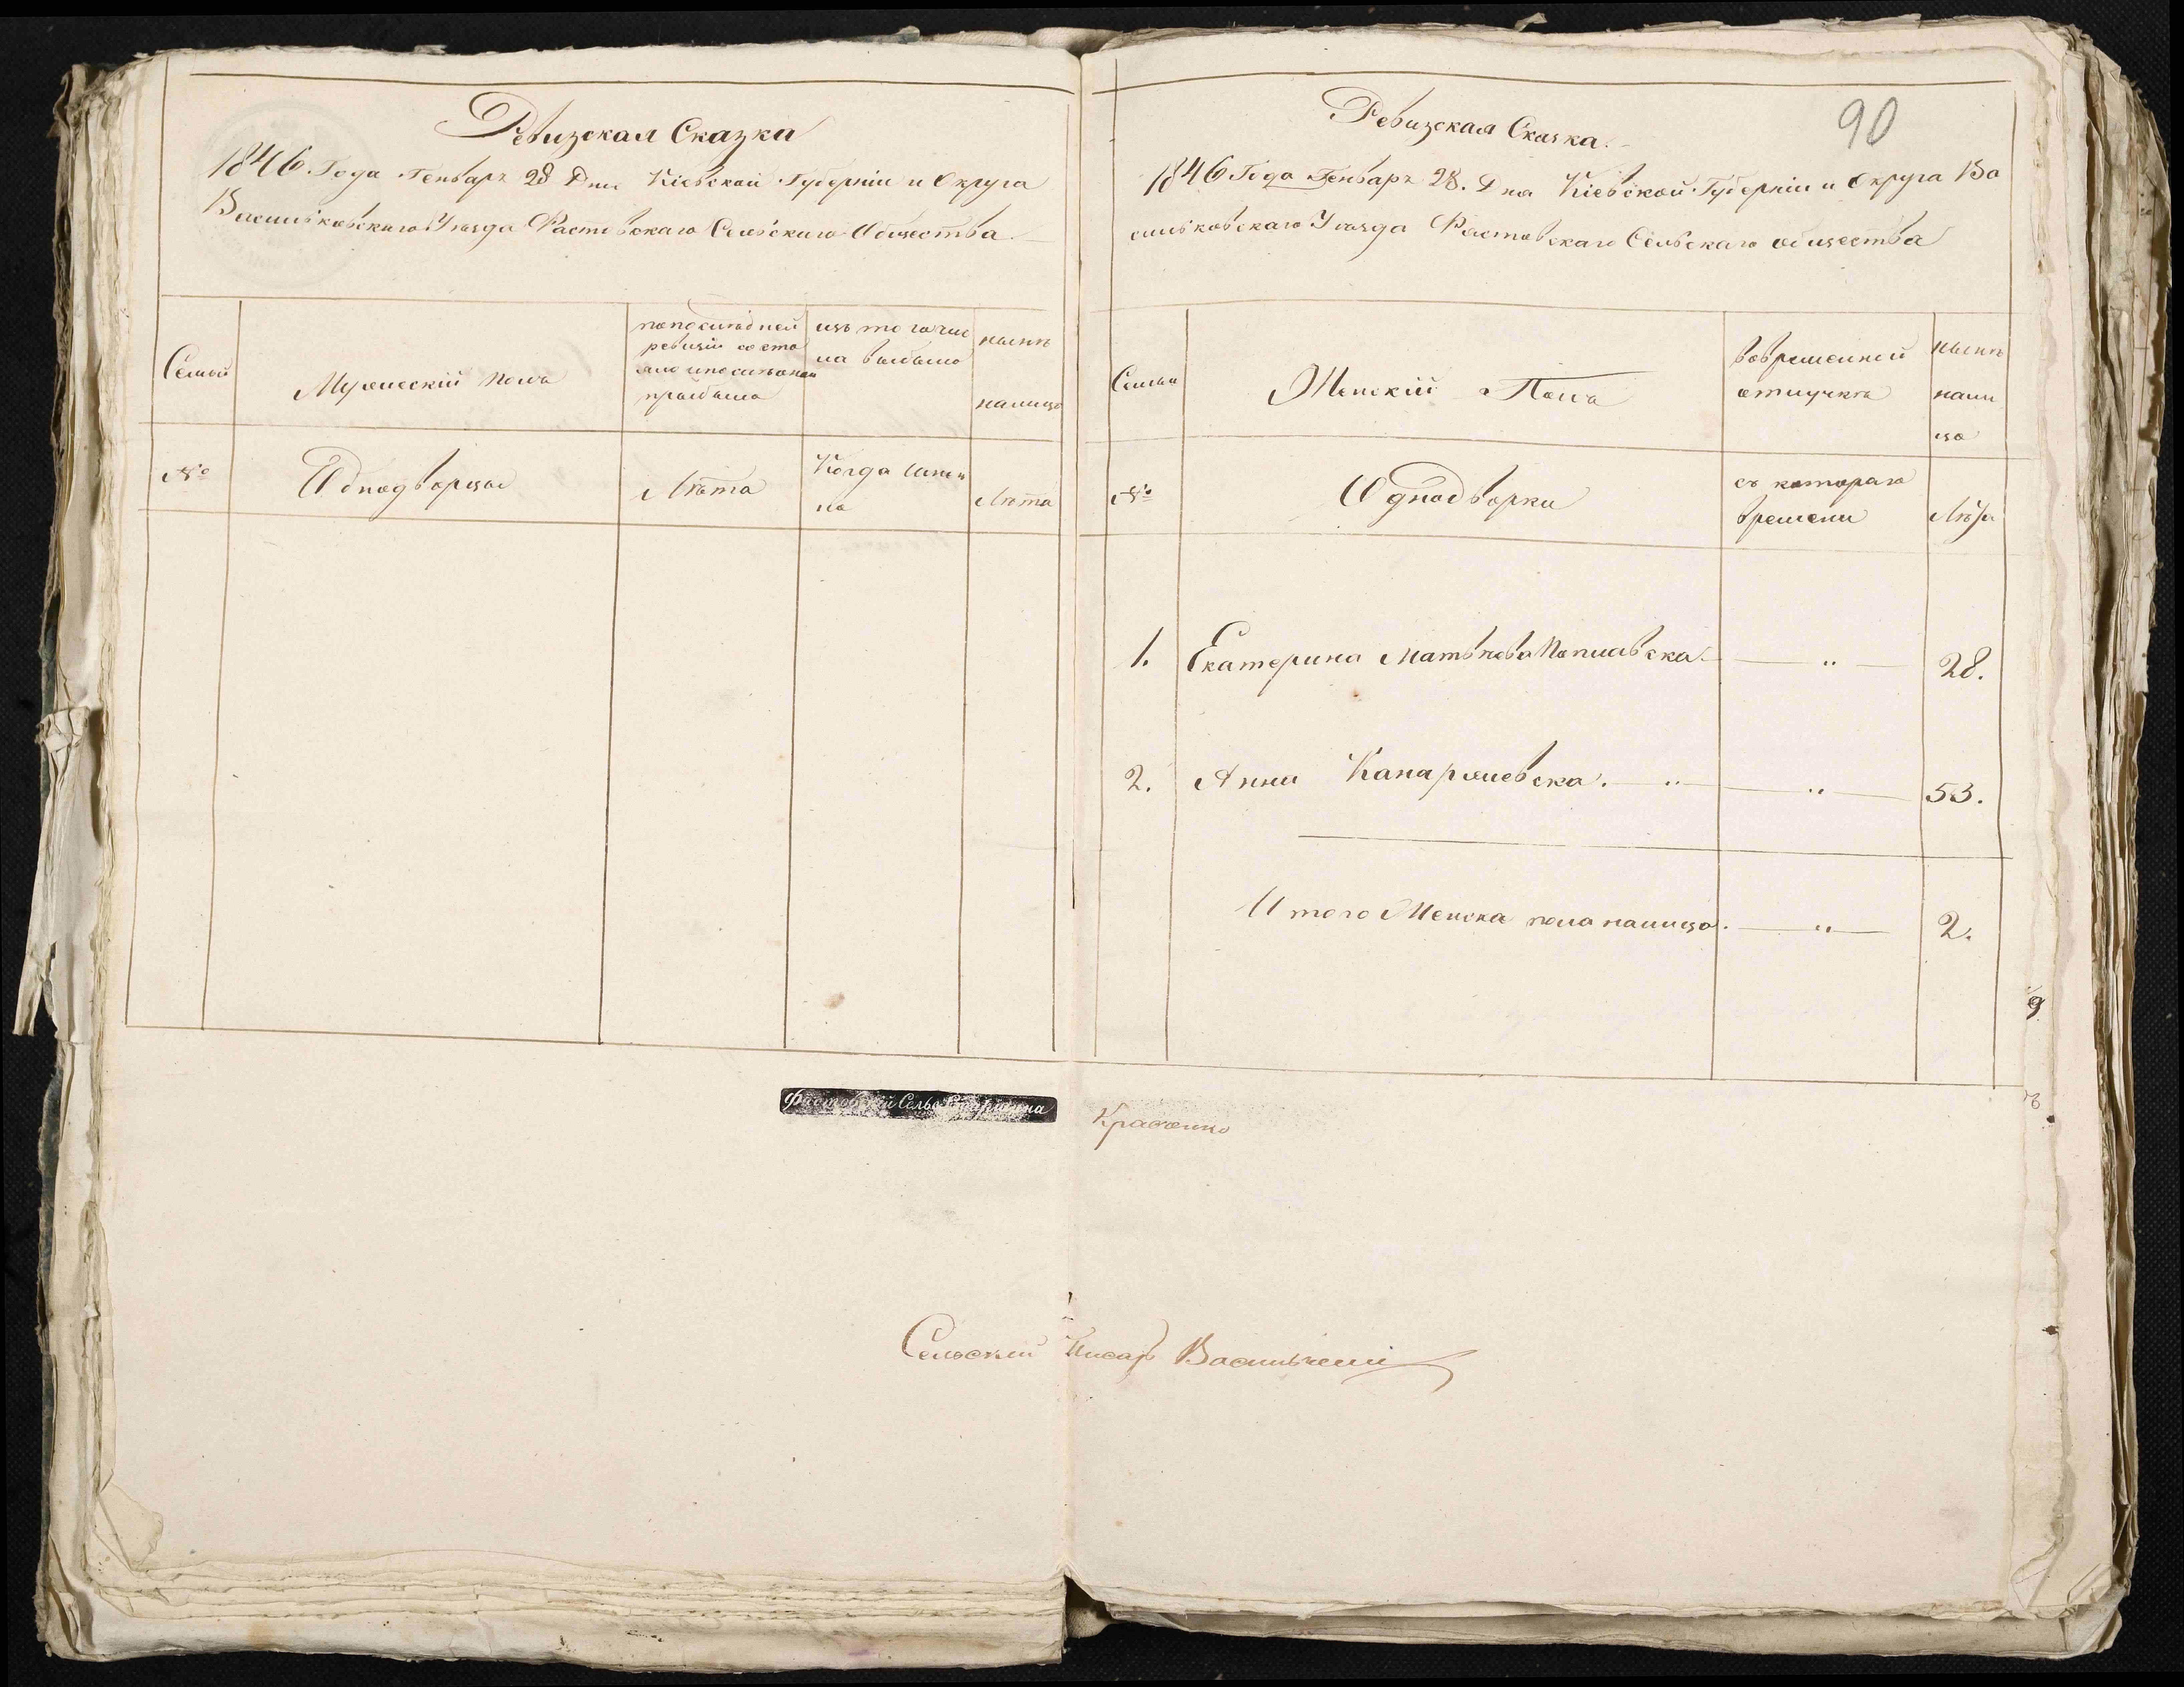 Ревизская Сказка
1846 Года Генваря 28 Дня Кіевской Губерніи и Округа
Васильковскаго Уѣзда Фастовскаго Сельскаго Общества
Семьи
Мужескій пола
по последней
ревизіи состо
яло и после оной
прибыло
изъ того чис
ла выбыло
нынѣ
налицо
№
Однодворцы
Лѣта
Когда имен
но
Лѣта
90
Ревизская Сказка.
1846 Года Генваря 28. Дня Кіевской Губерніи и Округа Ва
сильковскаго Уѣзда Фастовскаго Сельскаго общества
Семьи
Женскій Пола
во временной
отлучкѣ
нынѣ
нали
цо
№
Однодворки
съ котораго
времени
Лѣта
1. Екатерина Матвѣева Поплавска. — „ — 28.
2. Анна Канаржевска. — „ — „ — 53.
Итого Женска пола налицо. — „ — 2.
Фастовскій Сельс. Старшина
Сельскій Писарь